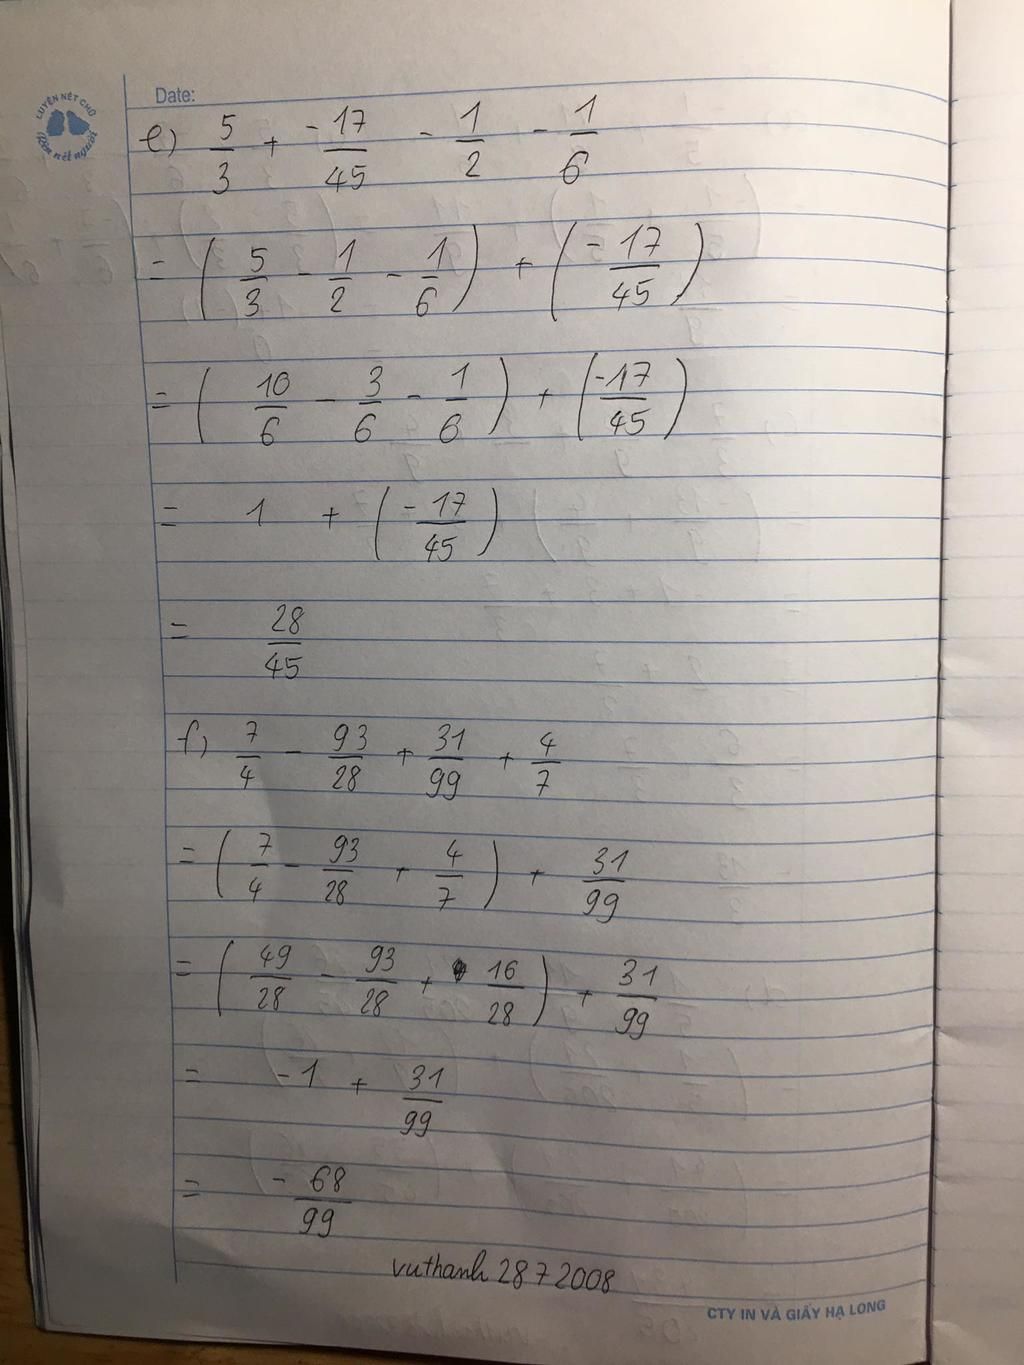 LUYỆN NÉT CHỮ
Rèn nết người
Date:
e) 5/3 + -17/45 - 1/2 - 1/6
= (5/3 - 1/2 - 1/6) + (-17/45)
= (10/6 - 3/6 - 1/6) + (-17/45)
= 1 + (-17/45)
= 28/45
f) 7/4 - 93/28 + 31/99 + 4/7
= (7/4 - 93/28 + 4/7) + 31/99
= (49/28 - 93/28 + 16/28) + 31/99
= -1 + 31/99
= -68/99
vuthanh 28 7 2008
CTY IN VÀ GIẤY HẠ LONG